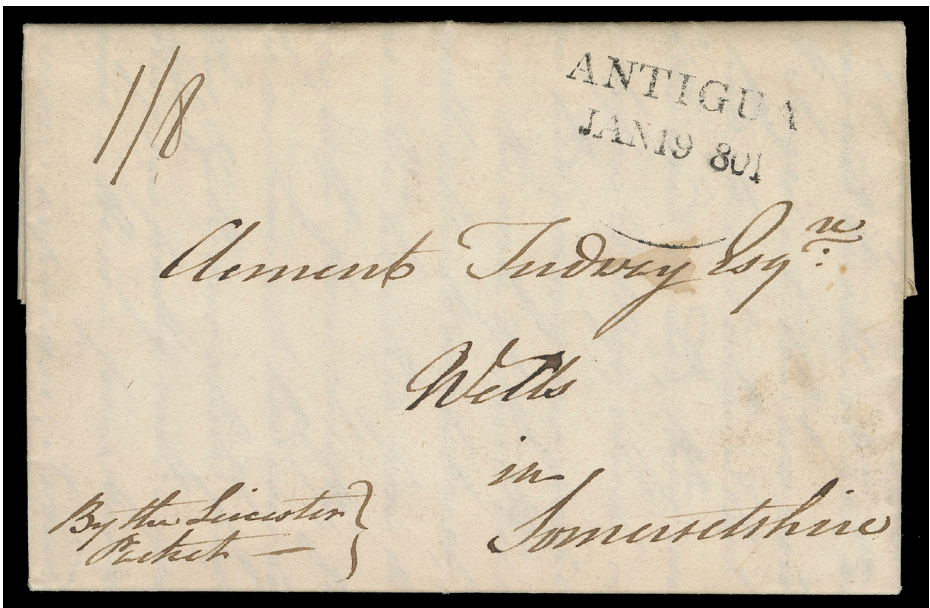 1/8
ANTIGUA
JAN 19 801
Clement Tudway Esqre:
Wells
in
Somersetshire
By the Leicester
Packet —